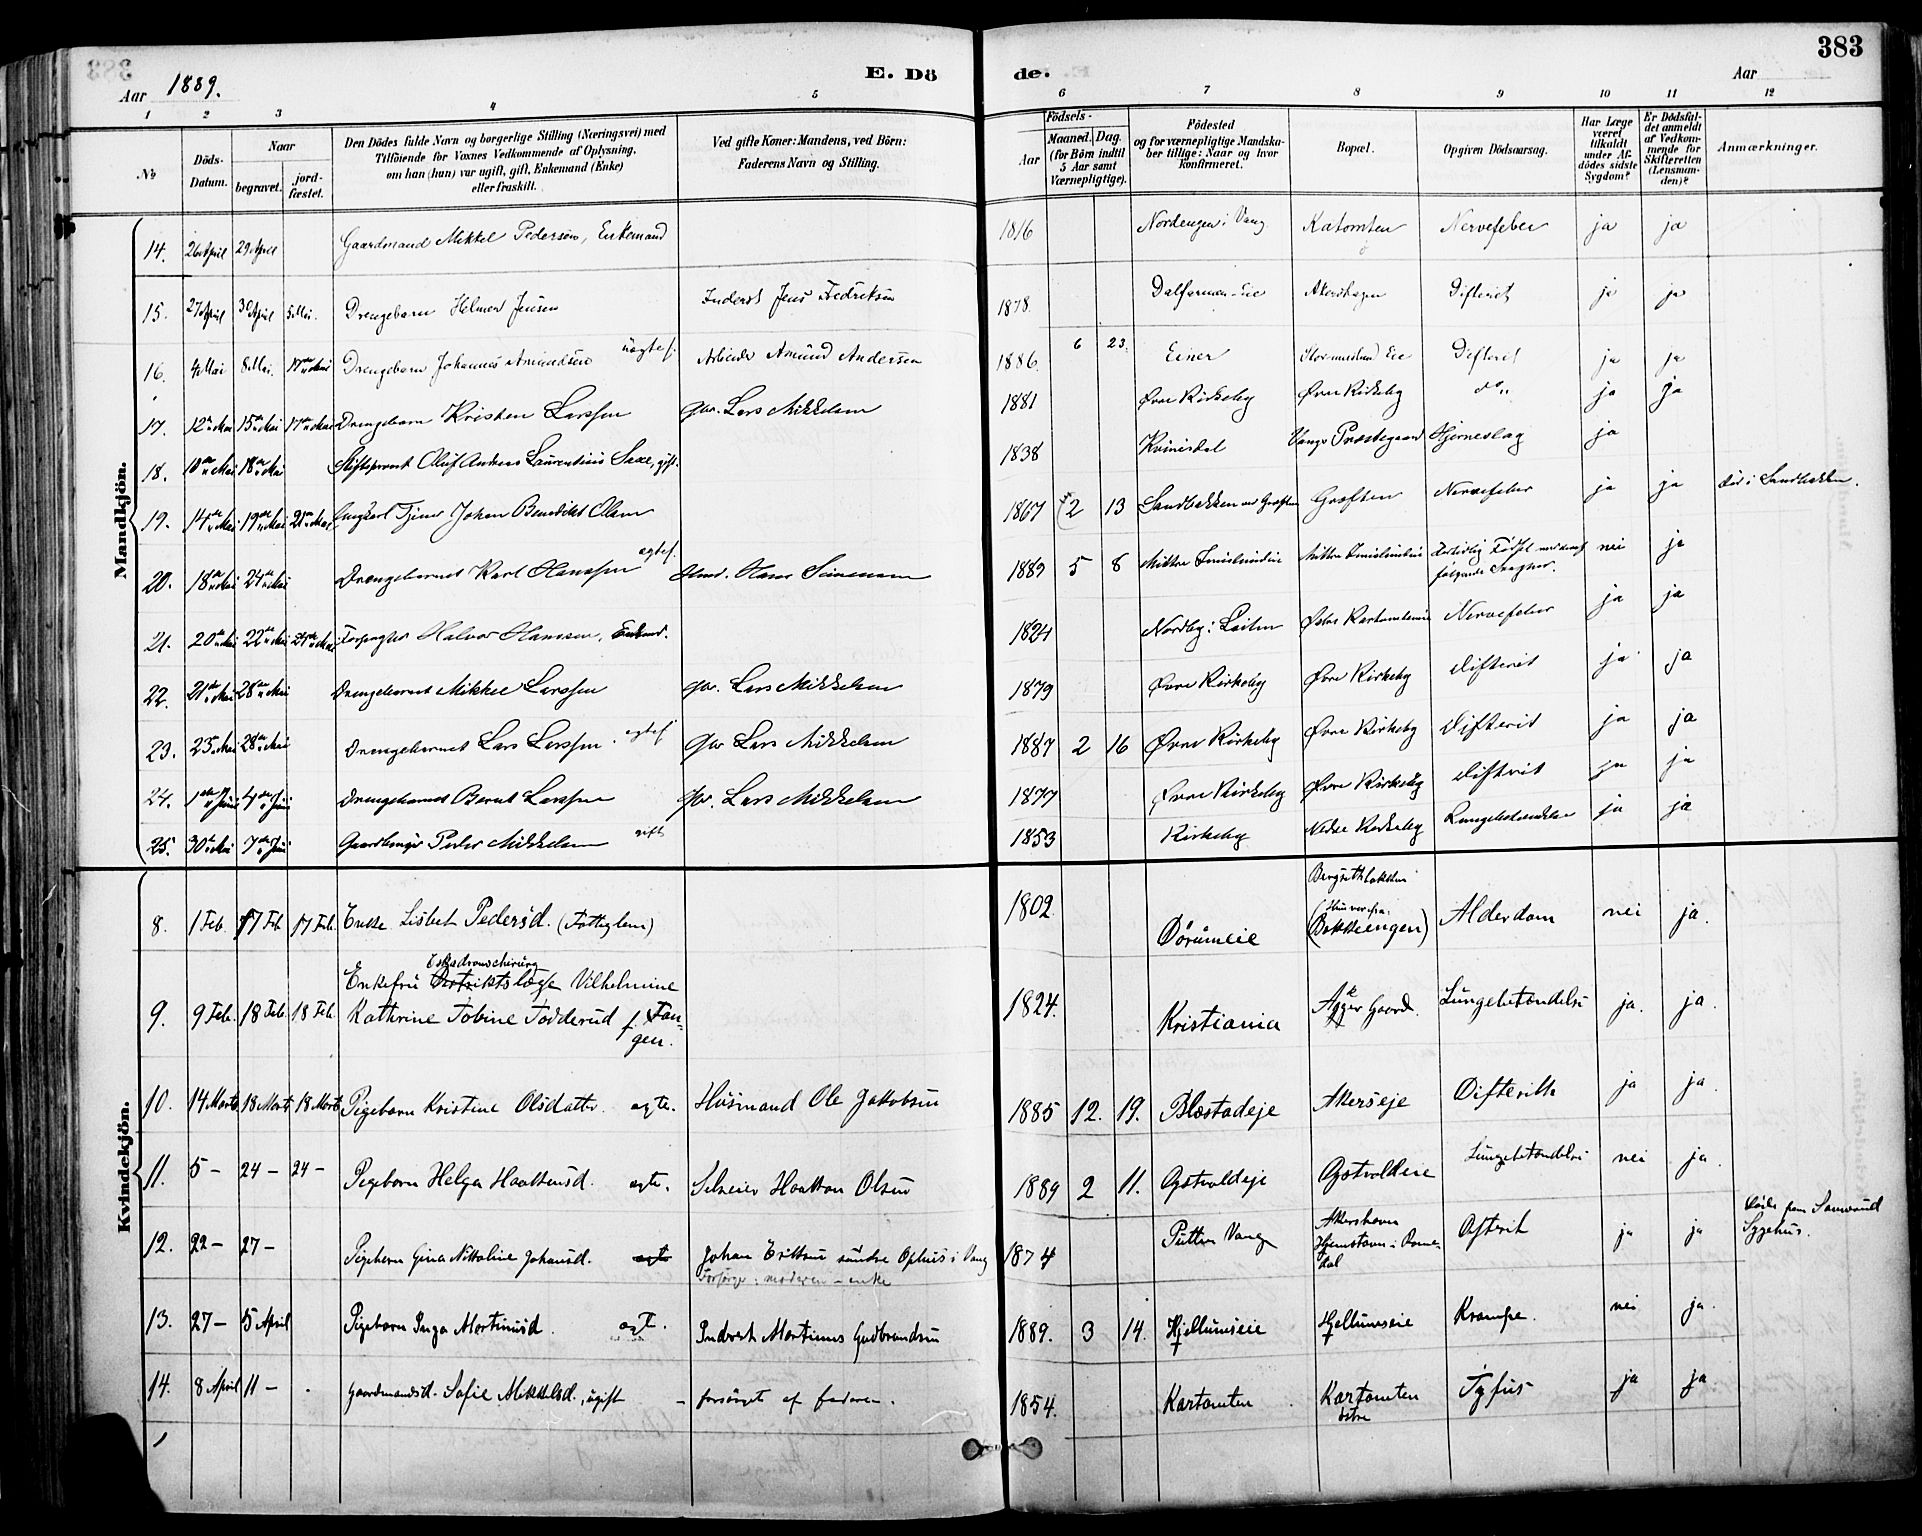 383
Aar 1889.
E. Dö
de.
Aar
1 2 3 4 5 6 7 8 9 10 11 12
№
Döds-Datum.
Naar
begravet.
jordfæstet.
Den Dödes fulde Navn og borgerlige Stilling (Næringsvei) med
Tilföiende for Voxnes Vedkommende af Oplysning,
om han (hun) var ugift, gift, Enkemand (Enke)
eller fraskilt.
Ved gifte Koner: Mandens, ved Börn:
Faderens Navn og Stilling.
Födsels-
Aar
Maaned. Dag.
(for Börn indtil
5 Aar samt
Værnepligtige).
Födested
og for værnepligtige Mandskaber tillige: Naar og hvor
konfirmeret.
Bopæl.
Opgiven Dödsaarsag.
Har Læge
været
tilkaldt
under Afdödes sidste
Sygdom?
Er Dödsfaldet anmeldt
af Vedkommende for
Skifteretten
(Lensmanden)?
Anmærkninger.
Mandkjön.
14. 26 April 29 April Gaardmand Mikkel Pedersen, Enkemand 1816 Nordengen i Vang Katomten Nervefeber ja ja
15. 27 April 30 April 5 Mai. Drengebarn Helmer Jensen Inderst Jens Fredriksen 1878. Akershagen Difterit ja ja
16. 4 Mai 8 Mai. 17de Mai Drengebarn Johannes Amundsen uægtef. Arbeider Amund Andersen 1886. 6 23. Einer Eie Difterit ja ja
17. 12te Mai 15de Mai 17de Mai Drengebarn Kristen Larssen Gbr. Lars Mikkelsen 1881 Øvre Kirkeby Øvre Kirkeby do. ja ja
18. 10de Mai 18de Mai Stiftsprovst Oluf Andreas Laurentius Saxe, gift. 1838 Kvinisdal Vangs Præstegaard Hjerneslag ja
19. 14de Mai 19de Mai 21de Mai Ungkarl Tjener Johan Benedikt Olsen 1867 2 13 Sandbakken ved Grøften Grøften Nervefeber ja ja Död i Sandbakken.
20. 18de Mai 24de Mai Drengebarnet Karl Hanssen ægtef. Hans Simensen 1889 5 8 Mittre Mittre For tidlig Fødsel med deraf følgende Svaghed. nei ja
21. 20de Mai 22de Mai 24de Mai Halvor Hanssen, Enkemd. 1824 Nordby i Løiten Østre Kartomten Nervefeber ja ja
22. 21de Mai 28de Mai Drengebarnet Mikkel Larssen Gbr. Lars Mikkelsen 1879 Øvre Kirkeby Øvre Kirkeby Difterit ja ja
23. 25. Mai 28de Mai Drengebarnet Lars Larssen. ægtef Gbr Lars Mikkelsen 1887 2 16 Øvre Kirkeby Øvre Kirkeby Difterit ja ja
24. 1ste Juni 4de Juni Drengebarnet Bernt Larssen Gbr. Lars Mikkelsen 1877 Øvre Kirkeby Øvre Kirkeby Difterit ja ja
25. 30te Mai 7de Juni Gaardbruger Peder Mikkelsen gift 1853 Kirkeby Nedre Kirkeby Lungebetændelse ja ja
Kvindekjön.
8. 1 Feb. 17 Feb 17 Feb. Enke Lisbet Pedersd. (Fattiglem) 1802. Dørumeie Bergsethbakken (Hun var fra Bakkeengen) Alderdom nei ja.
9. 9 Feb. 18 Feb. 18 Feb. Enkefru Eskadronschirurg Distriktslæge Vilhelmine
Kathrine Tobine Todderud f. Fangen. 1824. Kristiania Aker Gaard. Lungebetændelse ja. ja.
10. 14 Marts 18 Marts 18 Marts Pigebarn Kristine Olsdatter ægte. Husmand Ole Jakobsen 1885 12. 19. Blæstadeje Akerseje Difterith ja ja.
11. 5 – 24 – 24 – Pigebarn Helga Haakensd. ægte. Selveier Haakon Olsen 1889 2 11. Opstvoldeje Opstvoldeie Lungebetændelse nei ja.
12. 22 – 27 – Pigebarn Gina Nikoline Johansd. ægte Johan Eriksen søndre Ophus i Vang
Forsørge: moderen – enke 1874 Putten Vang Akershavn Hjemstavn i Romedal Difterit ja ja Døde paa Sanderud Sygehus.
13. 27 – 5 April Pigebarn Inga Martinusd. ægt. Inderst Martinus Gudbrandsen 1889. 3 14. Hjellumseie Hjellumseie Krampe. nei ja.
14. 8 April 11 – Gaardmandsd. Sofie Mikkelsd., ugift – forsørget af faderen. 1854. Kartomten Kartomten østre Tyfus ja ja